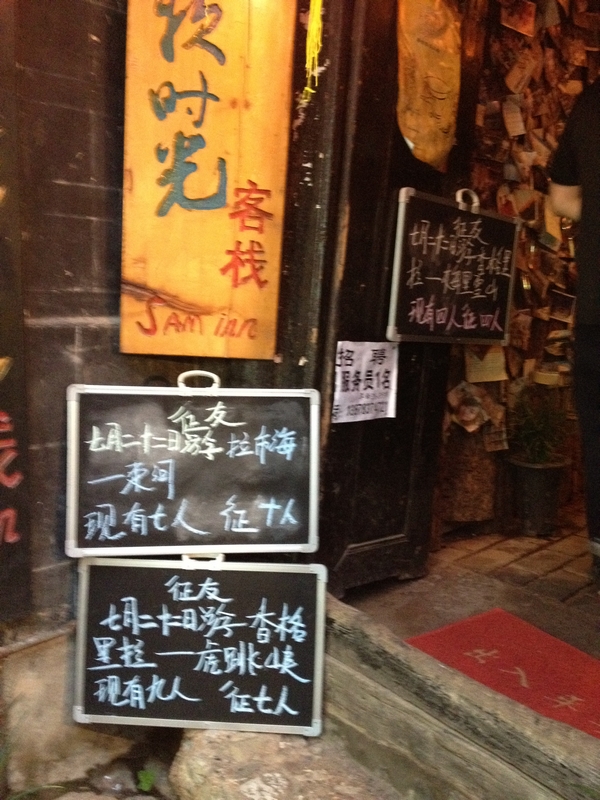 时光
客栈
SAM inn
征友
七月二十二日游香格里
拉
现有四人征四人
招 聘
服务员1名
征友
七月二十二日游 拉市海
一束河
现有七人 征十人
征友
七月二十七日游 香格
里拉一虎跳峡
现有九人 征七人
出入平